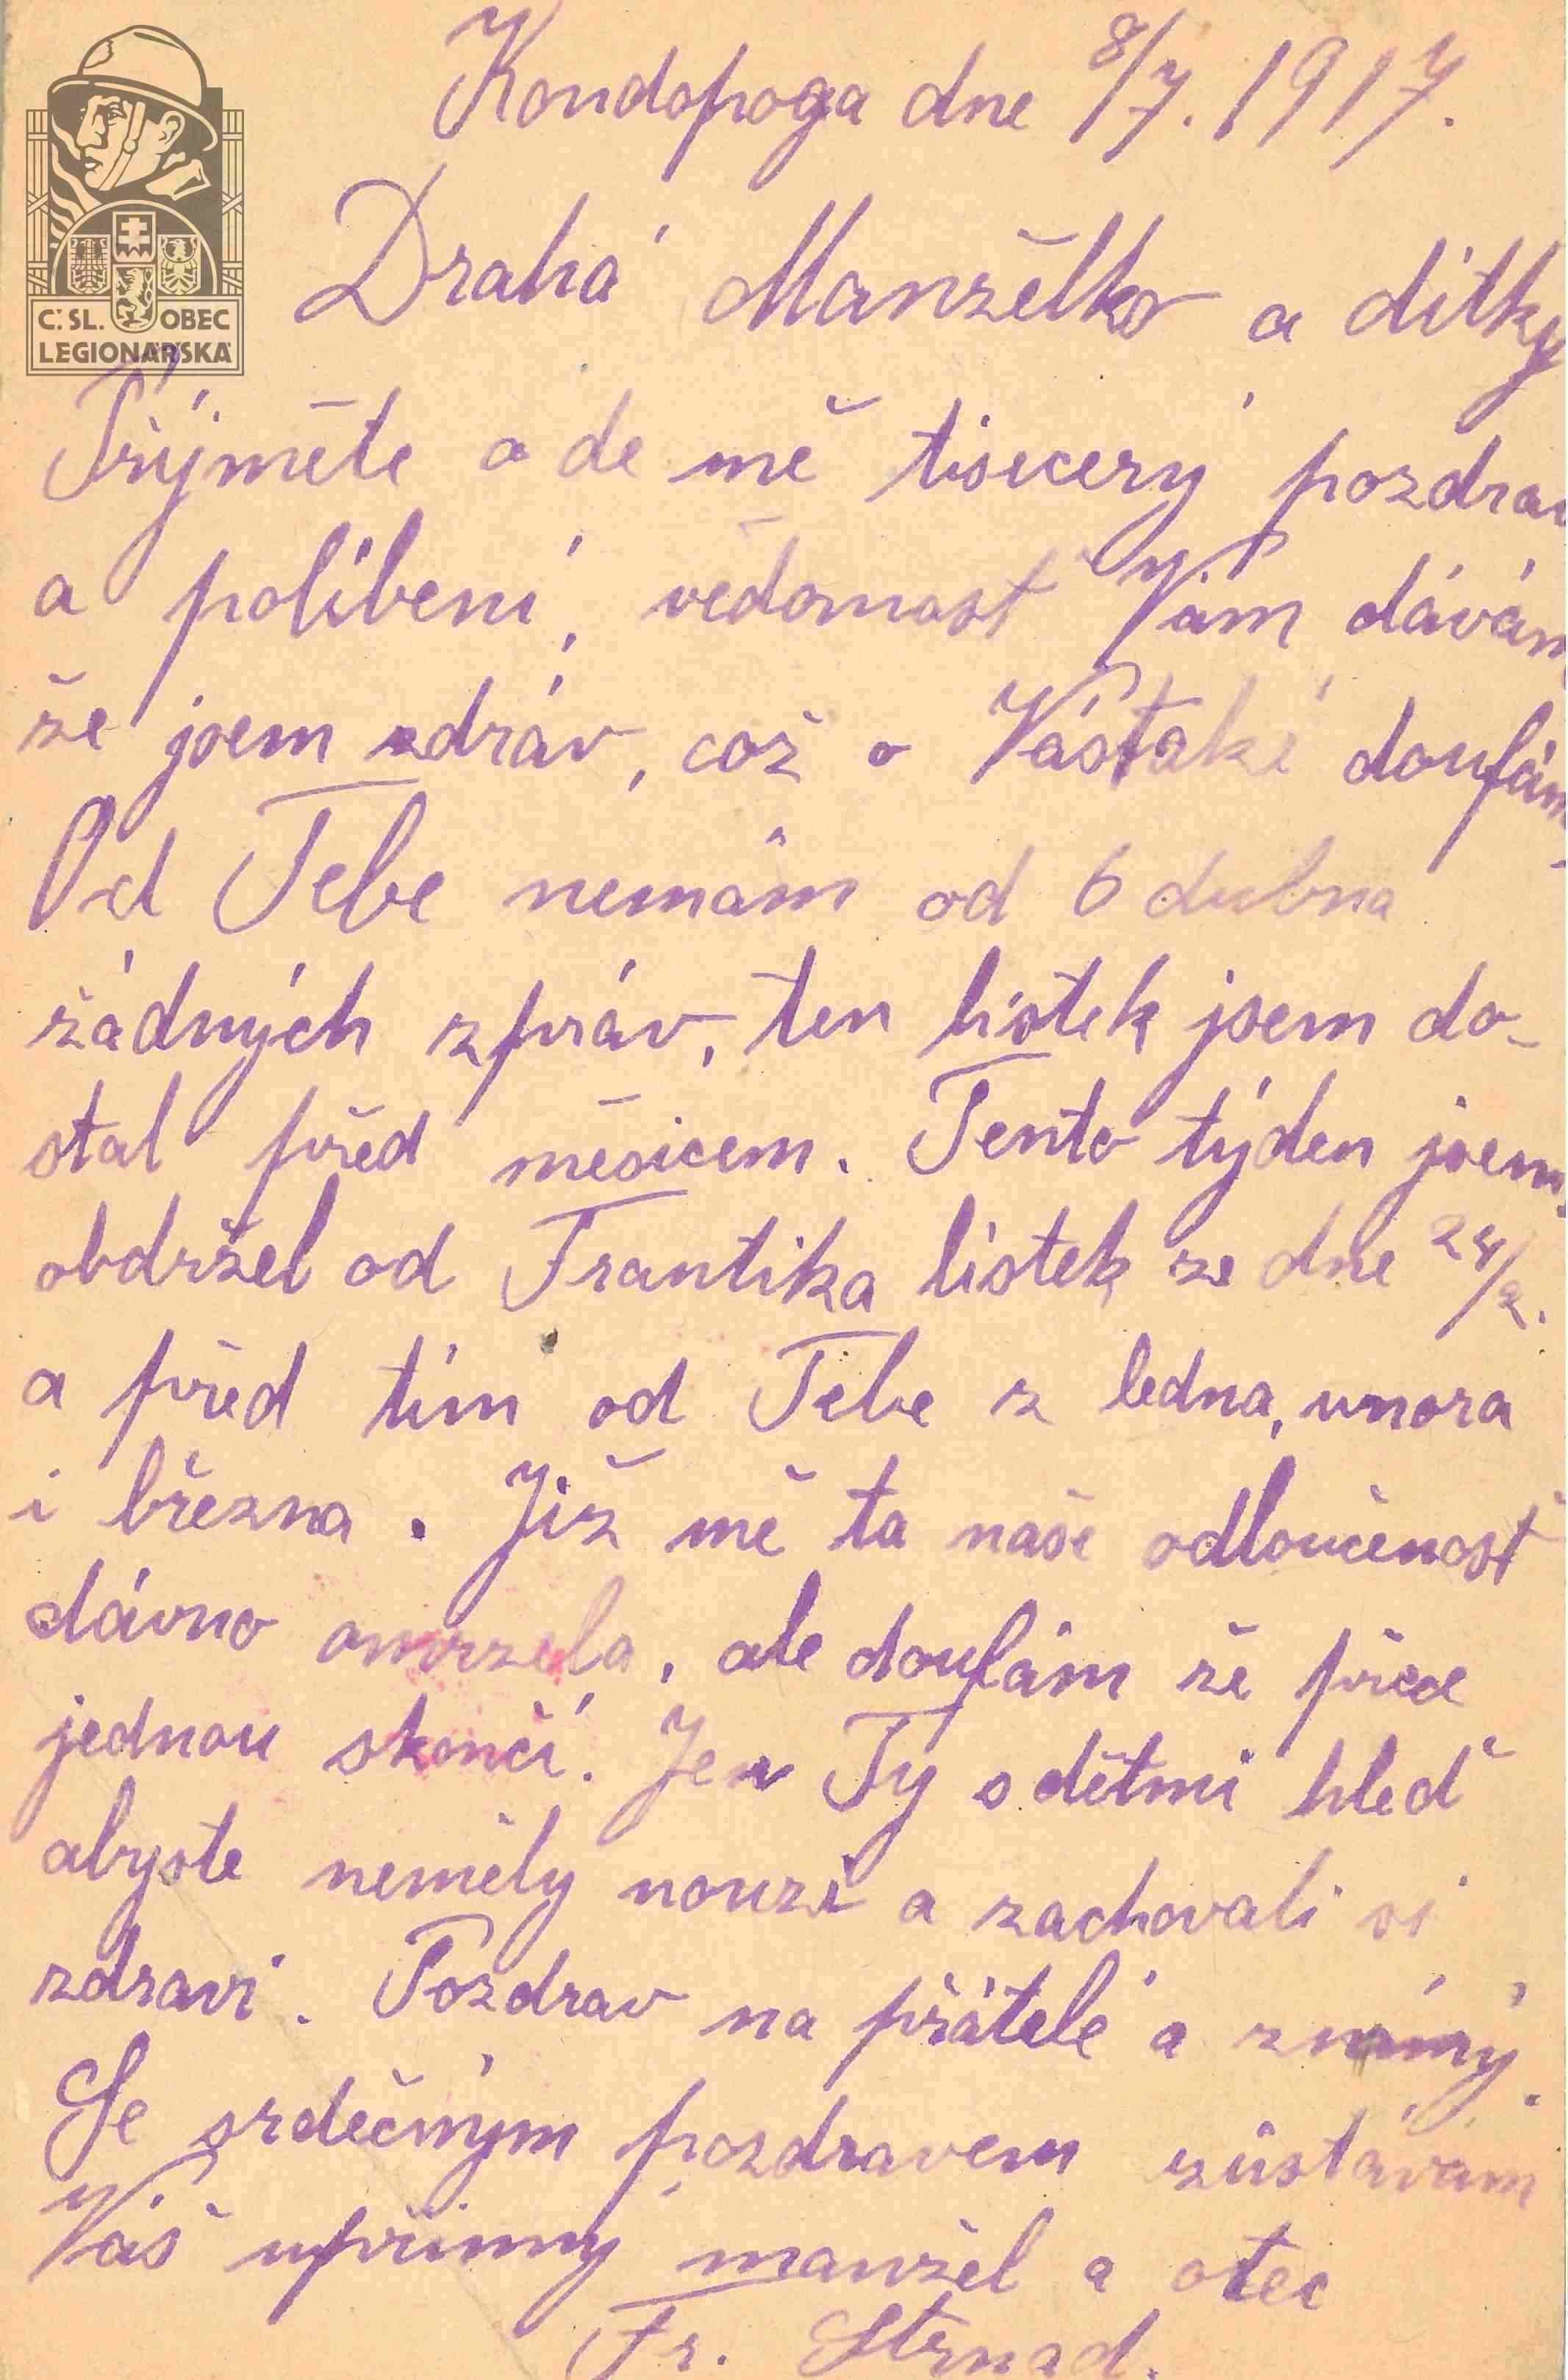 Kondopoga dne 8/7. 1917.
C.SL. OBEC
LEGIONÁŘSKÁ
Drahá Manželko a dítky
Příjměte ode mě tisícerý pozdrav
a políbení, vědomost Vám dávám
že jsem zdráv, což o Vás také doufám
Od Tebe nemám od 6 dubna
žádných zpráv, ten lístek jsem do-
stal před měsicem. Tento týden jsem
obdržel od Frantika lístek ze dne 24/2.
a před tím od Tebe z ledna, unora
i března. Již mě ta naše odloučenost
dávno omrzela, ale doufám že přece
jednou skončí. Jen Ty s dětmi hleď
abyste neměly nouzi a zachovali si
zdraví. Pozdrav na přátelé a známý.
Se srdečným pozdravem zůstávám
Váš upřímný manžel a otec
Fr. Strnad.